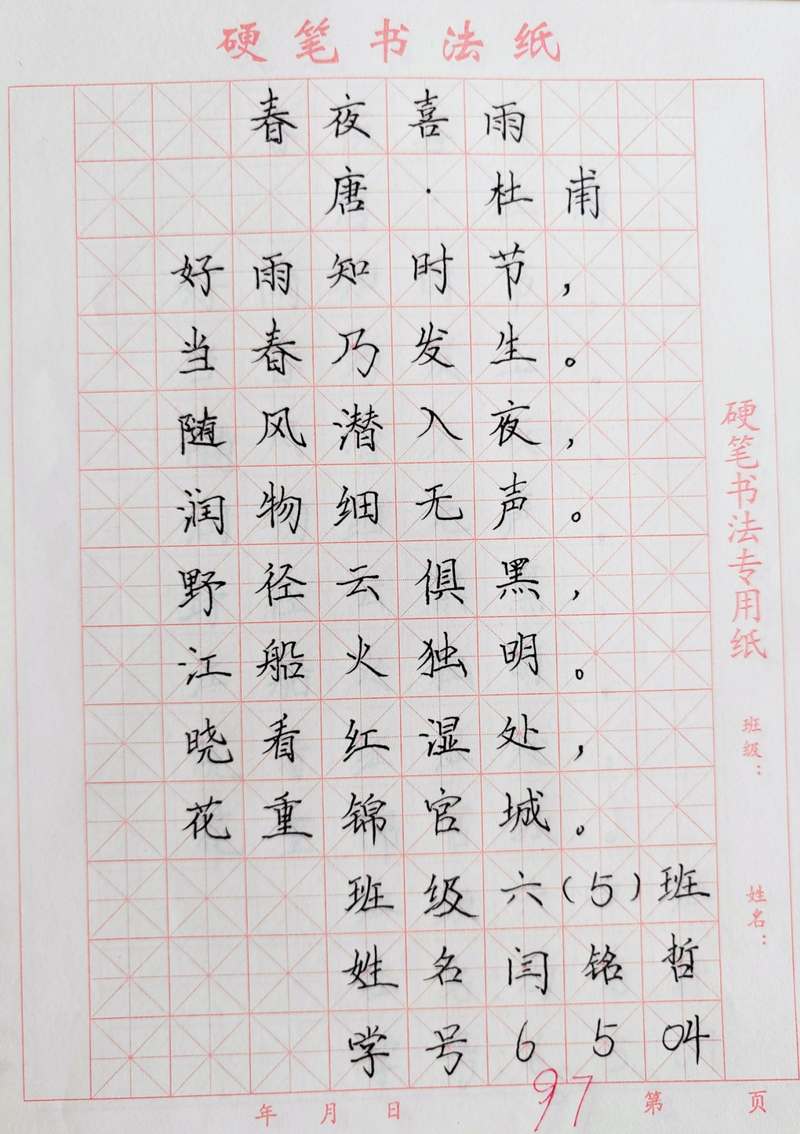 硬笔书法纸
春夜喜雨
唐·杜甫
好雨知时节，
当春乃发生。
随风潜入夜，
润物细无声。
野径云俱黑，
江船火独明。
晓看红湿处，
花重锦官城。
班级六(5)班
姓名闫铭哲
学号6504
97
硬笔书法专用纸
班级：
姓名：
年月日
第页